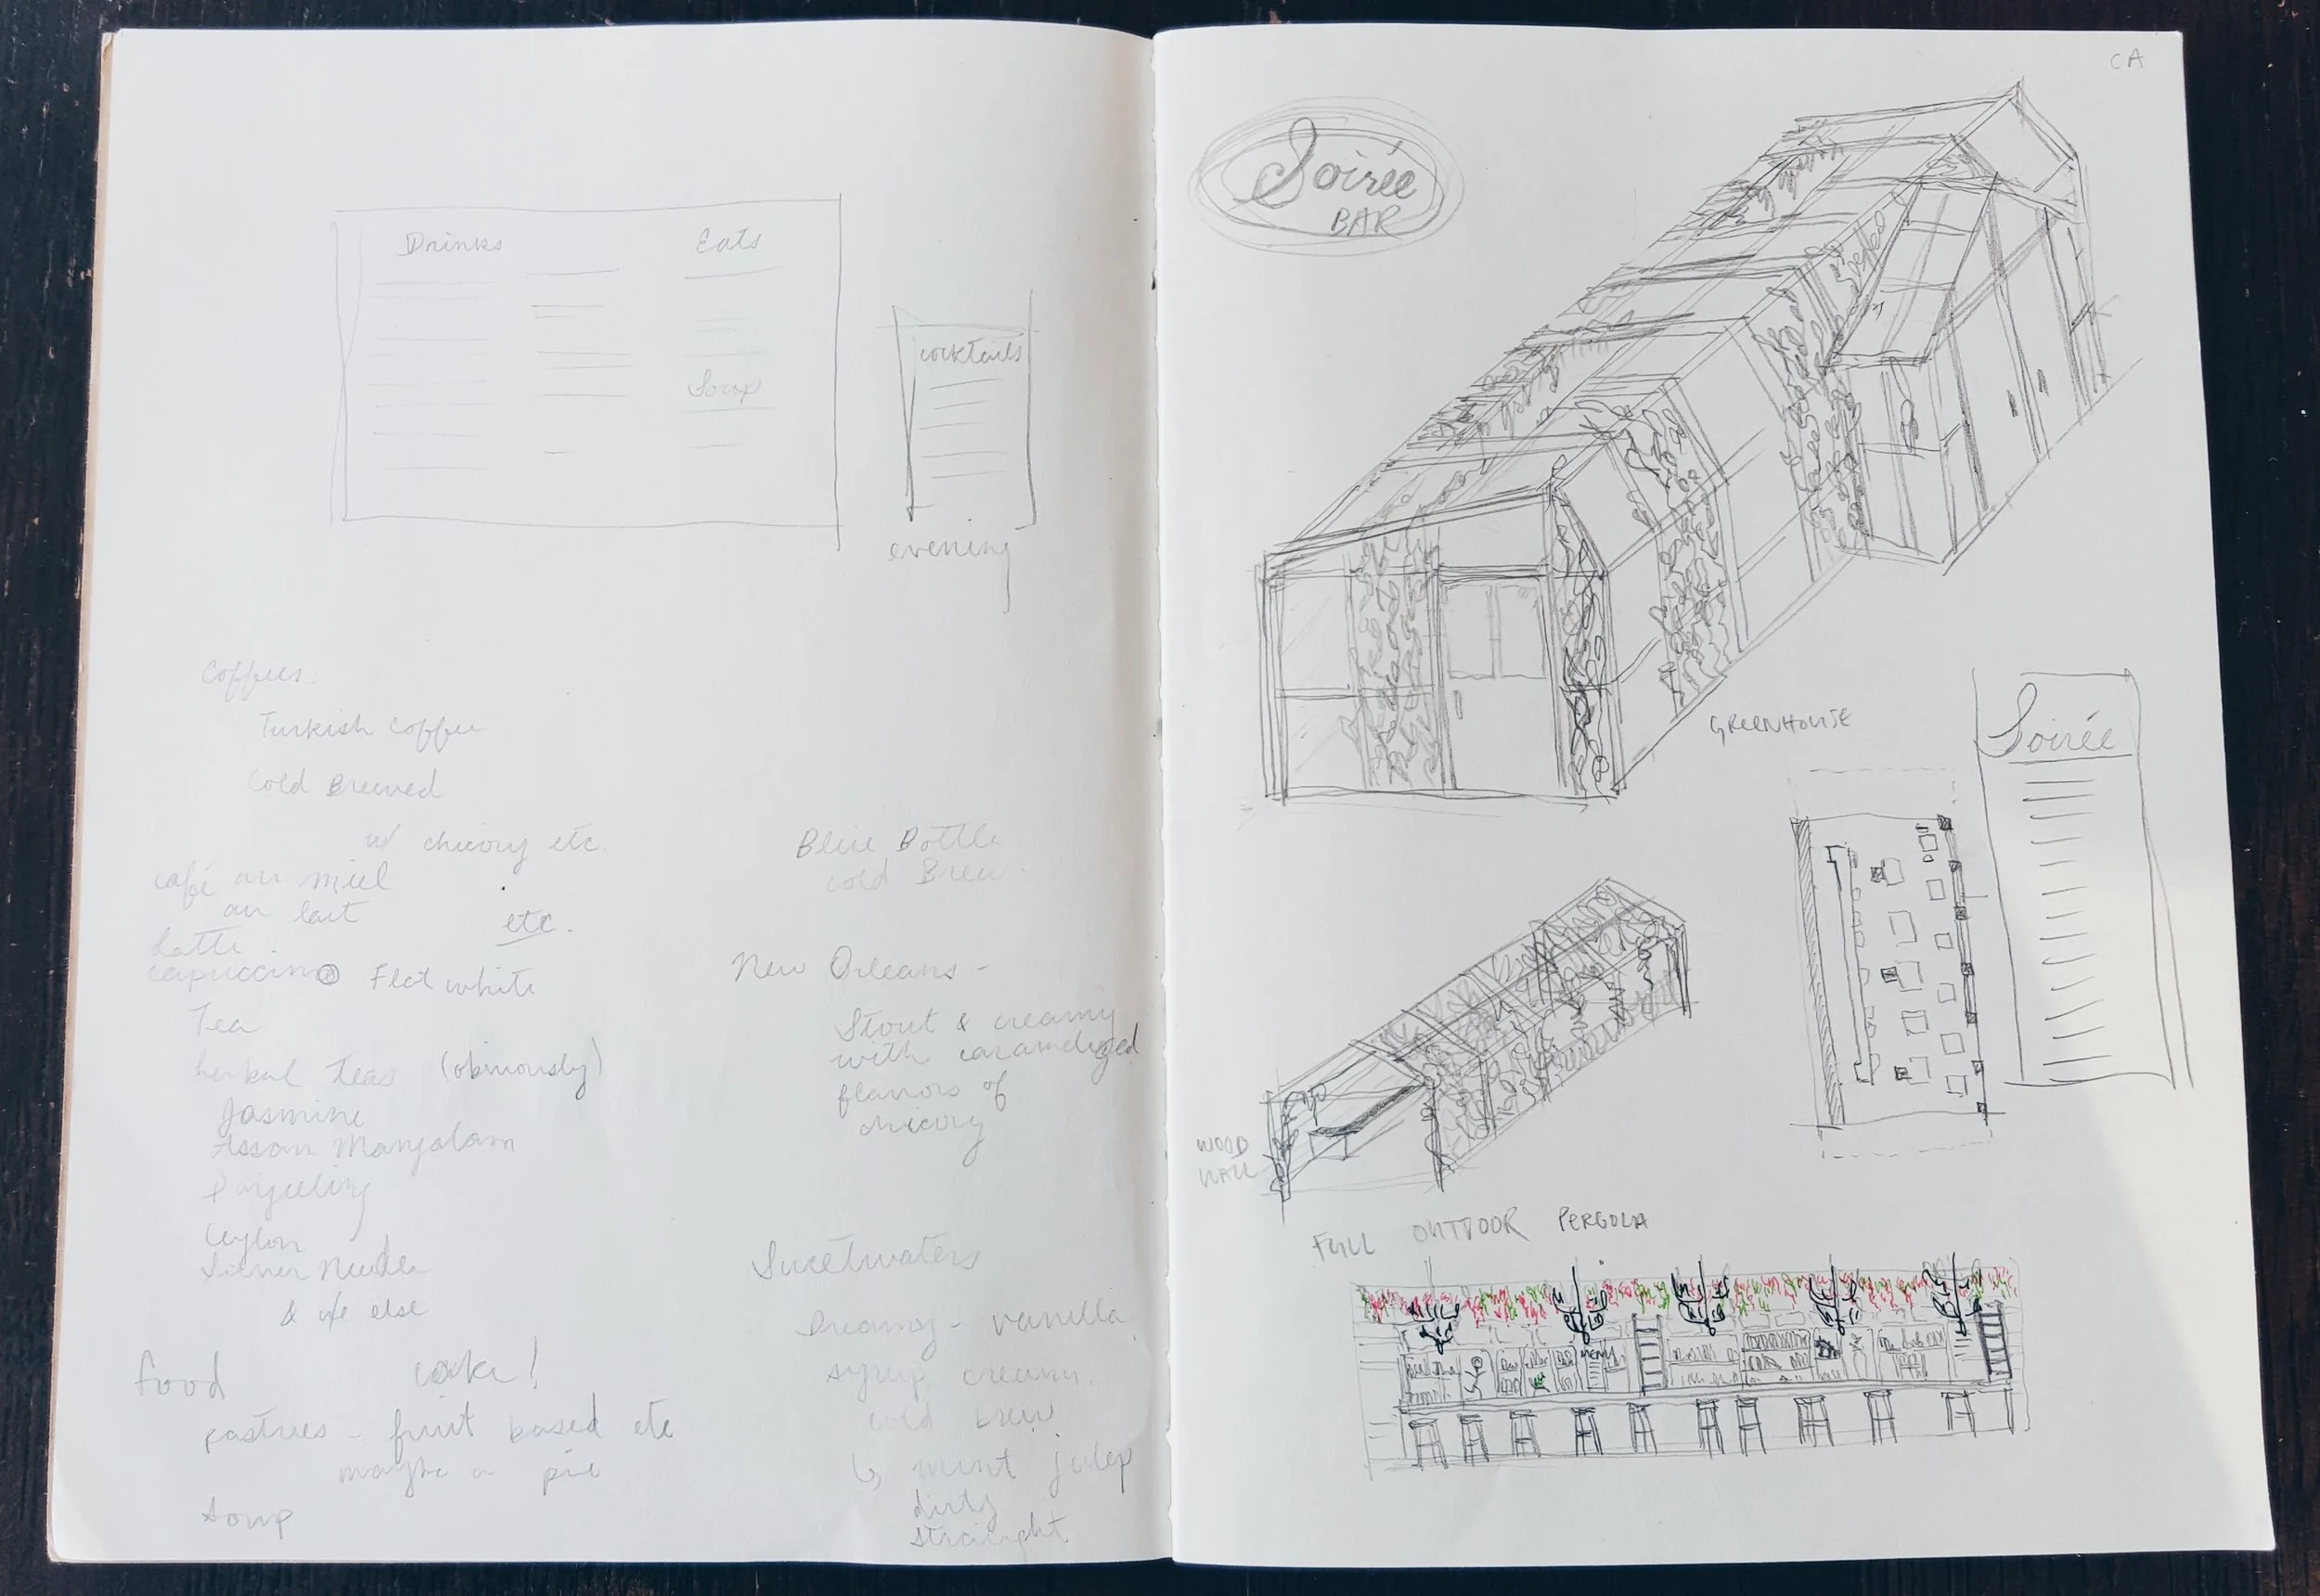 Drinks
Eats
Soup
cocktails
evening
Coffees
Turkish coffee
Cold Brewed
w/ chicory etc.
café au miel
au lait
etc.
Latte
capuccino Flat white
Tea
herbal teas (obviously)
Jasmine
Assam Manjolam
Darjeeling
Ceylon
Silver Needle
&
else
food
cake!
pastries - fruit based etc
maybe a pie
soup
Blue Bottle
cold Brew
New Orleans -
Stout & creamy
with caramelized
flavors of
chicory
Sweetwaters
Dreamy - vanilla
syrup, cream,
cold brew
↳ mint julep
dirty
straight
CA
Soirée
BAR
GREENHOUSE
Soirée
WOOD
WALL
FULL OUTDOOR PERGOLA
MENU